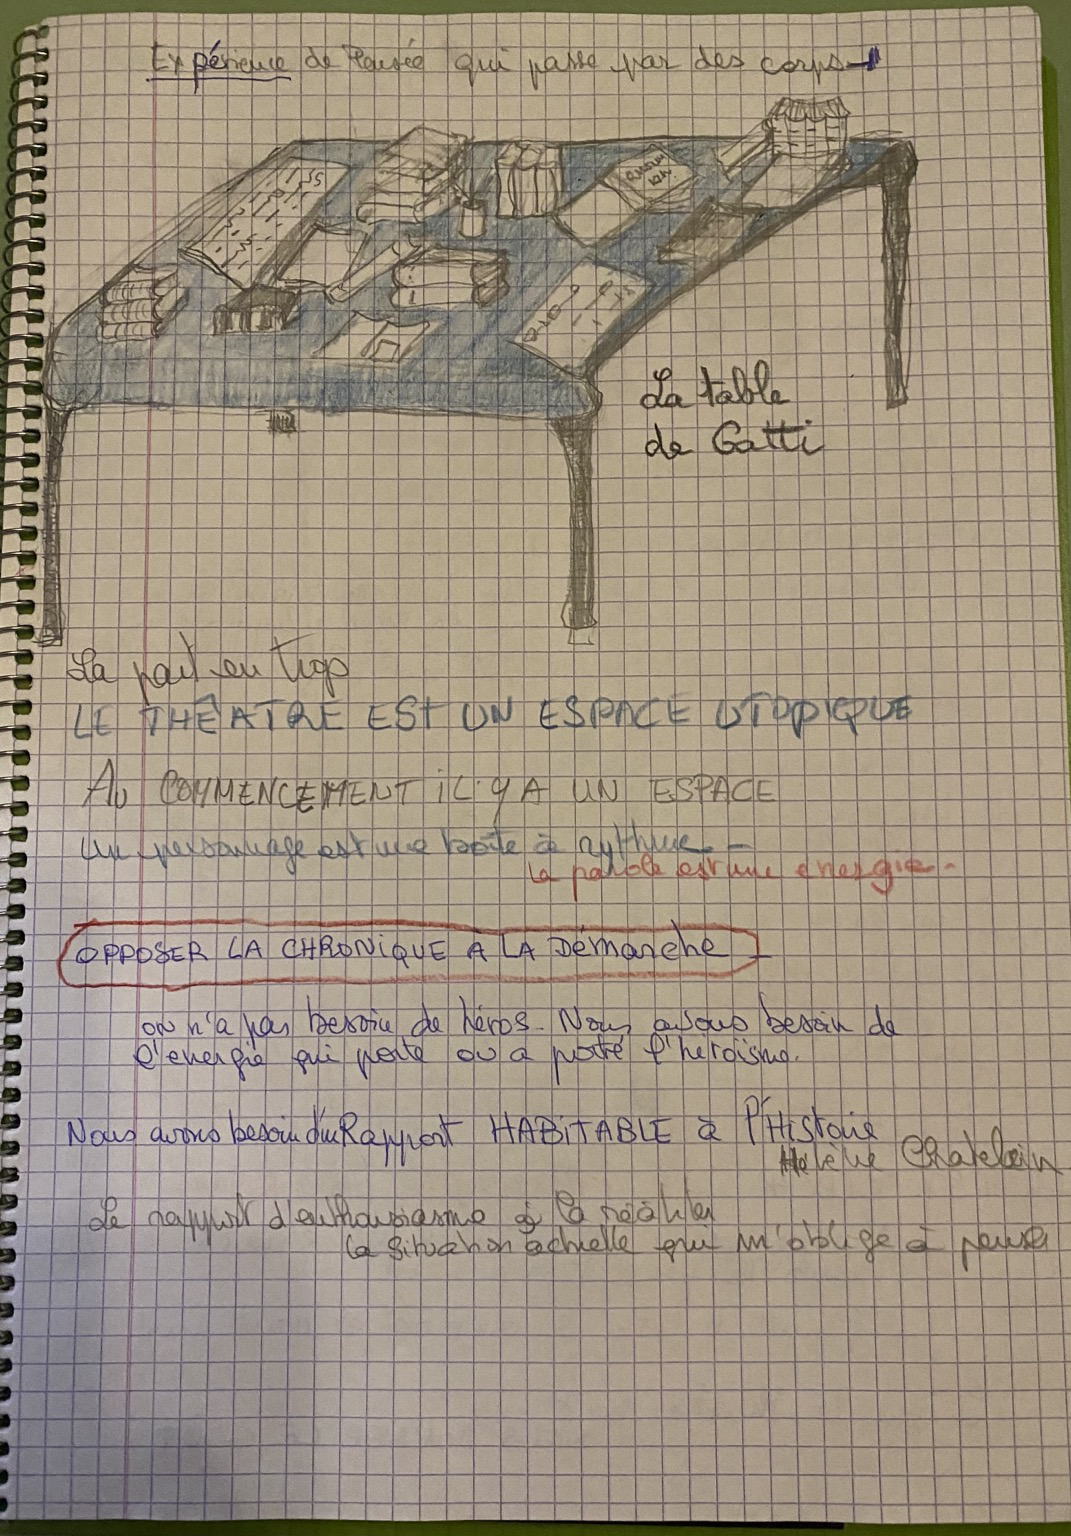 Expérience de Pensée qui passe par des corps
La table
de Gatti
La part en trop
LE THÉATRE EST UN ESPACE UTOPIQUE
AU COMMENCEMENT iL Y A UN ESPACE
Un personnage est une boîte à rythme -
la parole est une énergie -
OPPOSER LA CHRONIQUE A LA Démarche -
on n'a pas besoin de héros. Nous avons besoin de
l'energie qui porte ou a porté l'heroïsme.
Nous avons besoin d'un Rapport HABiTABLE à l'Histoire
Hélène Chatelain
Le rapport d'enthousiasme à la réalité
la situation actuelle qui m'oblige à penser